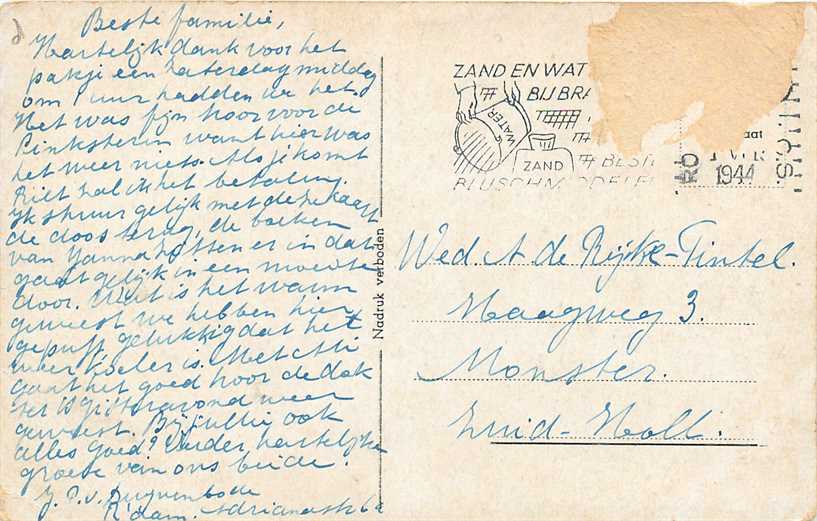 Beste familie,
Hartelijk dank voor het
pakje een zaterdagmiddag
om 1 uur hadden we het.
Het was fijn hoor voor de
Pinksteren want hier was
het weer niets. Als je komt
Riet zal ik het betalen.
Ik stuur gelijk met deze kaart
de doos terug, de boeken
van Janna zitten er in dat
gaat gelijk in een moeite
door. Wat is het warm
geweest we hebben hier
gepuft gelukkig dat het
weer koeler is. Met
gaat het goed hoor de dok
ter is gisteravond weer
geweest. Bij jullie ook
alles goed? Verder hartelijke
groete van ons beide.
J. P. v. Duyvenbode
R'dam. Adrianastr 6a
Nadruk verboden
ZAND EN WAT
BIJ BRA
WATER
ZAND
BESTE
BLUSCHMIDDELEN
RO
1944
Wed A de Rijke-Tintel.
Haagweg 3.
Monster.
Zuid-Holl.